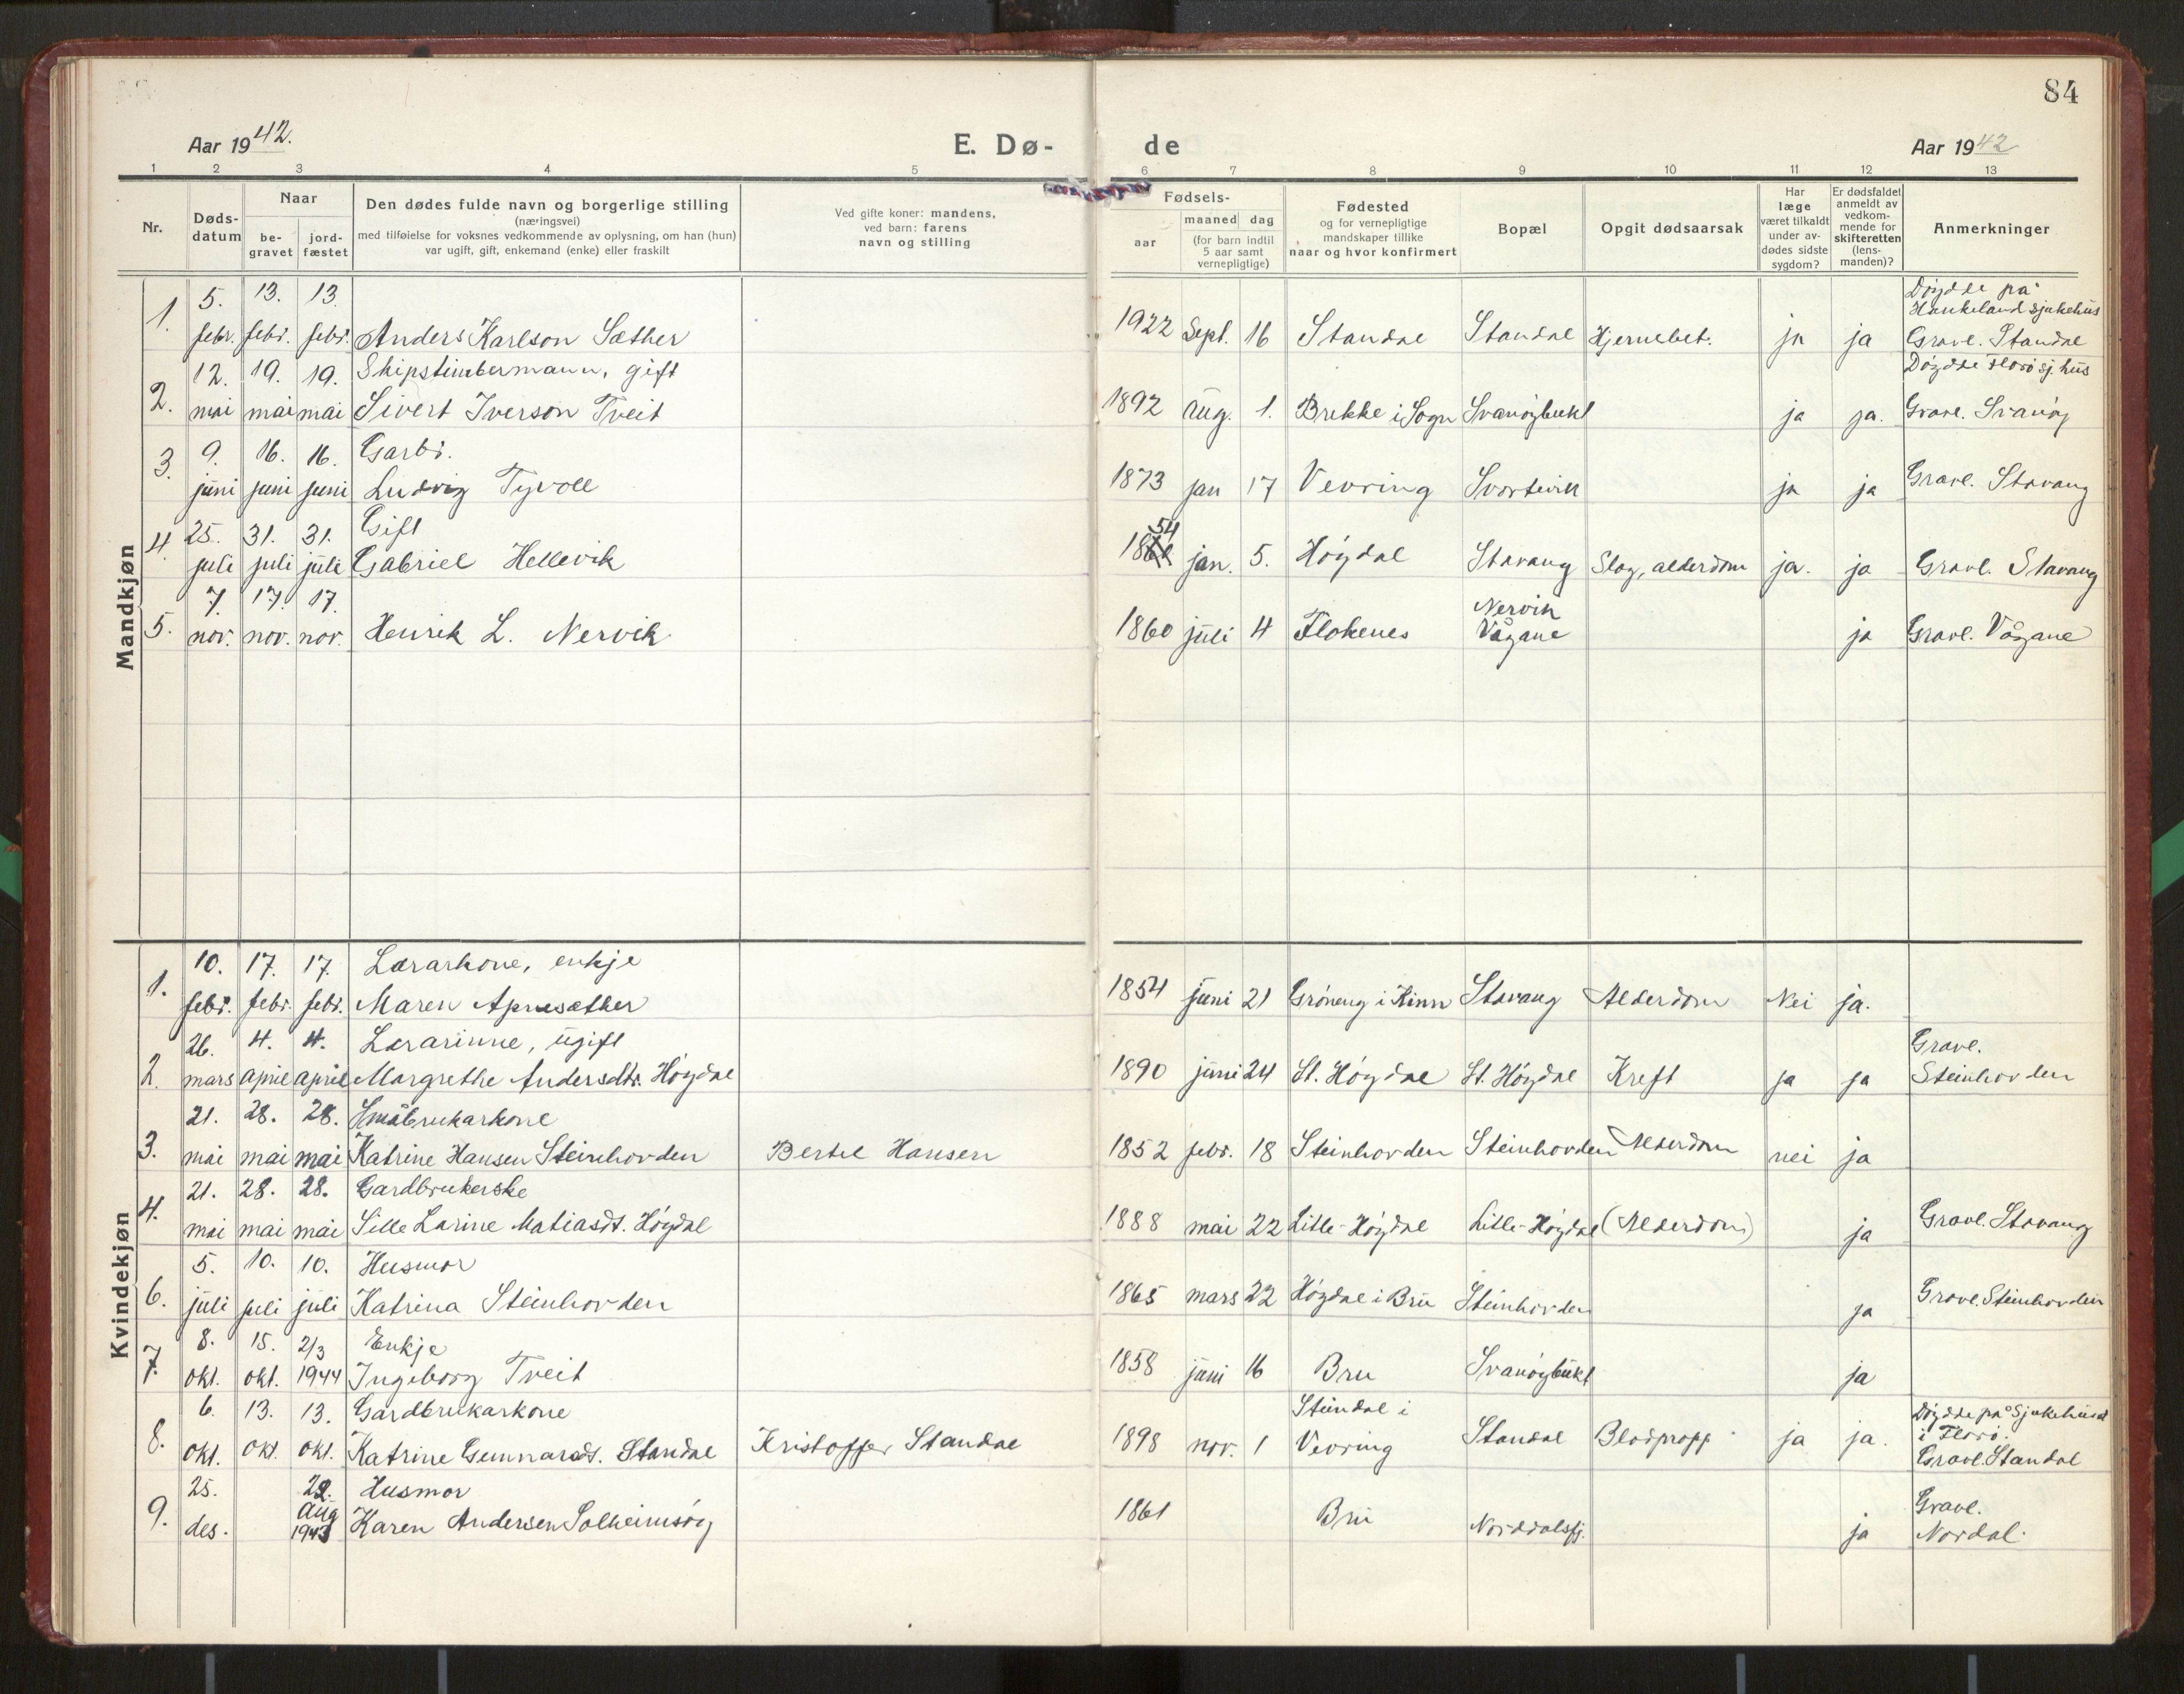 84
Aar 1942.
E. Dø-
de
Aar 1942
1 2 3 4 5 6 7 8 9 10 11 12 13
Nr.
Døds-
datum
Naar
be-
gravet
jord-
fæstet
Den dødes fulde navn og borgerlige stilling
(næringsvei)
med tilføielse for voksnes vedkommende av oplysning, om han (hun)
var ugift, gift, enkemand (enke) eller fraskilt
Ved gifte koner: mandens,
ved barn: farens
navn og stilling
Fødsels-
aar
maaned dag
(for barn indtil
5 aar samt
vernepligtige)
Fødested
og for vernepligtige
mandskaper tillike
naar og hvor konfirmert
Bopæl
Opgit dødsaarsak
Har
læge
været tilkaldt
under av-
dødes sidste
sygdom?
Er dødsfaldet
anmeldt av
vedkom-
mende for
skifteretten
(lens-
manden)?
Anmerkninger
Mandkjøn
1. 5. 13. 13. Døydde på
Haukeland sjukehus
febr. febr. febr. Anders Karlson Sæther 1922 Sept. 16 Standal Standal Hjernebet. ja ja Gravl. Standal
12. 19. 19. Skipstimbermann, gift Døydde Florö sj.hus
2. mai mai mai Sivert Iverson Tveit 1892 Aug. 1. Brekke i Sogn Svanøybukt ja ja. Gravl. Svanøy
3. 9. 16. 16. Garbr.
juni juni juni Ludvig Tyvoll 1873 jan 17 Vevring Svortevik ja ja Gravl. Stavang
4. 25. 31. 31. Gift 54
juli juli juli Gabriel Hellevik 18 jan. 5. Høydal Stavang Slag, alderdom ja. ja Gravl. Stavang
7. 17. 17. Nervik
5. nov. nov. nov. Henrik L. Nervik 1860 juli 4 Flokenes Vågane ja Gravl. Vågane
Kvindekjøn
10. 17. 17. Lærarkone, enkje
1. febr. febr. febr. Maren Apnesæther 1854 juni 21 Grøneng i Kinn Stavang Alderdom Nei ja.
26. 4. 4. Lærarinne, ugift Gravl.
2. mars april april Margrethe Andersdtr. Høydal 1890 juni 24 St. Høydal St. Høydal Kreft ja ja Steinhovden
21. 28. 28. Småbrukarkone
3. mai mai mai Katrine Hansen Steinhovden Bertel Hansen 1852 febr. 18 Steinhovden Steinhovden Alderdom nei ja
21. 28. 28. Gardbrukerske
4. mai mai mai Sille Larine Matiasdt. Høydal 1888 mai 22 Litle-Høydal Litle-Høydal (Alderdom) ja Gravl. Stavang
5. 10. 10. Husmor
6. juli juli juli Katrina Steinhovden 1865 mars 22 Høydal i Bru Steinhovden ja Gravl. Steinhovden
8. 15. 2/3 Enkje
7. okt. okt. 1944 Ingeborg Tveit 1858 juni 16 Bru Svanøybukt ja
6. 13. 13. Gardbrukarkone Steindal i Døydde på Sjukehuset
i Florø.
8. okt. okt. okt. Katrine Gunnarsdt. Standal Kristoffer Standal 1898 nov. 1 Vevring Standal Blodpropp ja ja. Gravl. Standal
25. 22. Husmor Gravl.
9. des. Aug 1943 Karen Andersen Solheimsøy 1861 Bru Norddalsfj. ja Nordal.